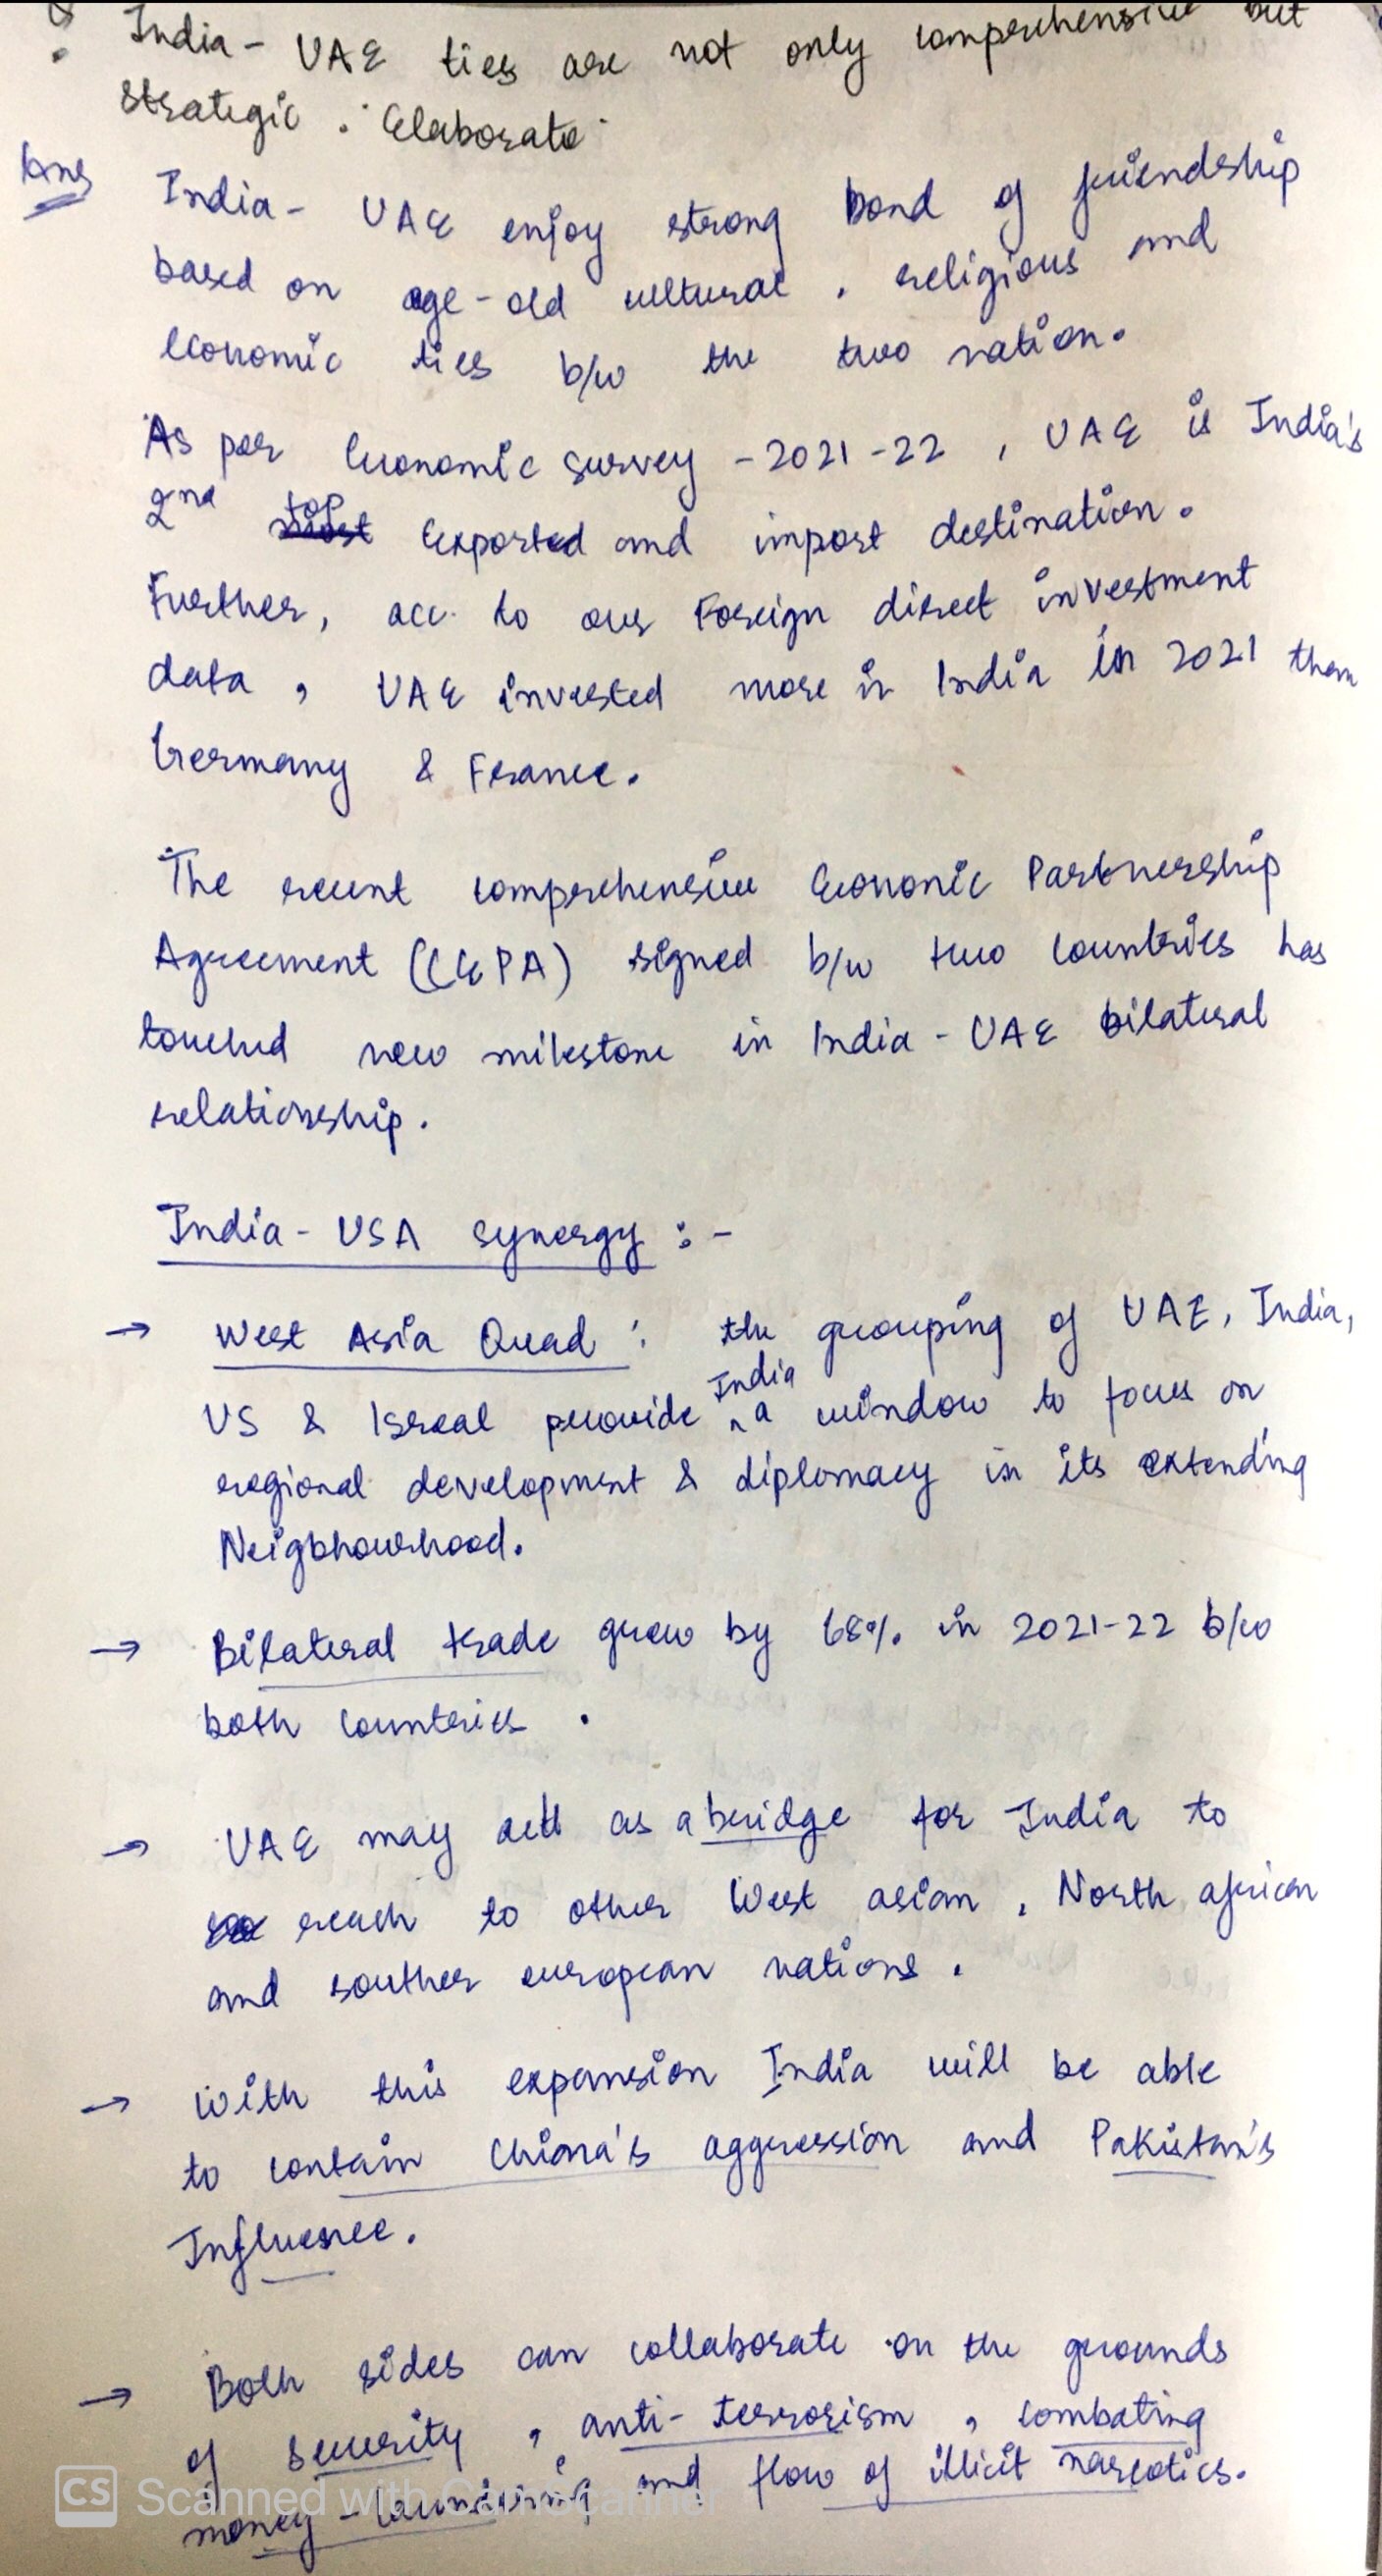 Q India - UAE ties are not only comprehensive but
strategic. Elaborate
Ans India - UAE enjoy strong bond of friendship
based on age-old cultural, religious and
economic ties b/w the two nation.
As per Economic survey - 2021-22, UAE is India's
2nd top Exported and import destination.
Further, acc. to our Foreign direct investment
data, UAE invested more in India in 2021 than
Germany & France.
The recent comprehensive Economic Partnership
Agreement (CEPA) signed b/w two countries has
touched new milestone in India - UAE bilateral
relationship.
India - USA synergy :-
→ West Asia Quad : the grouping of UAE, India,
US & Isreal provide India a window to focus on
regional development & diplomacy in its extending
Neigbhourhood.
→ Bilateral trade grew by 68% in 2021-22 b/w
both countries.
→ UAE may act as a bridge for India to
reach to other West asian, North african
and souther european nations.
→ With this expansion India will be able
to contain China's aggression and Pakistan's
Influence.
→ Both sides can collaborate on the grounds
of security, anti-terrorism, combating
money-laundering and flow of illicit narcotics.
CS Scanned with CamScanner